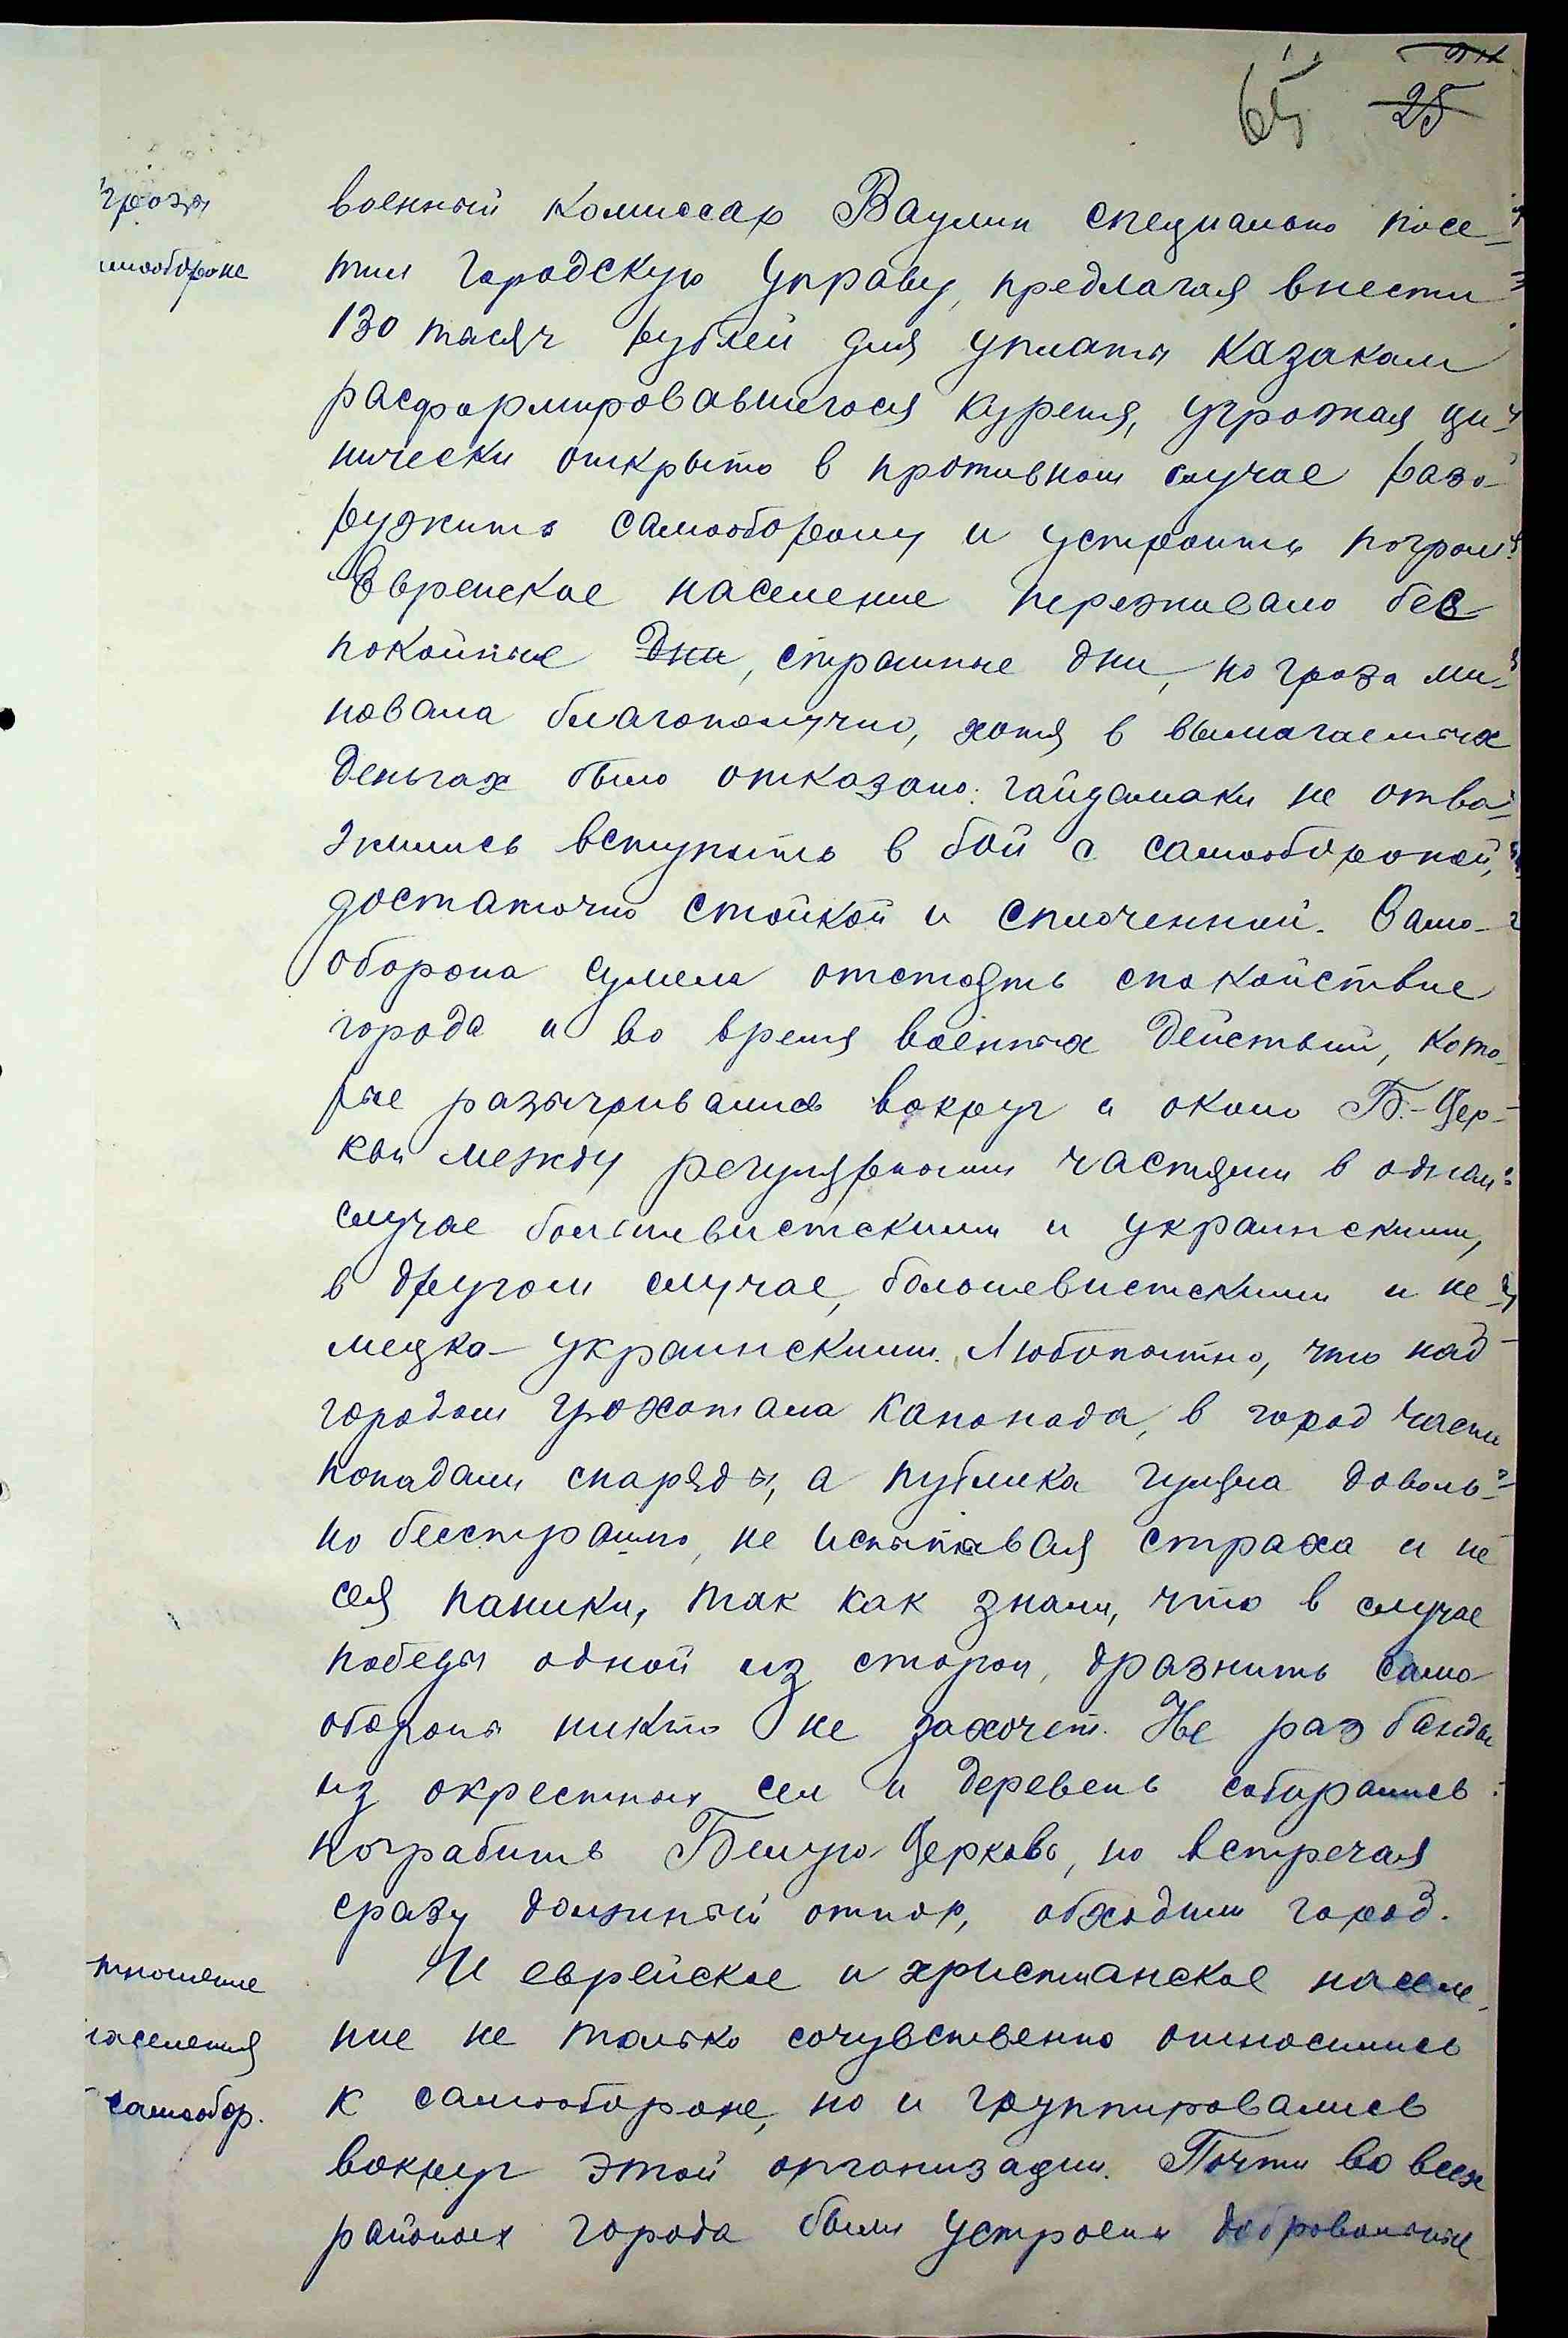 65 25
военный комиссар Ваулин специально посе-
тил городскую Управу, предлагая внести
130 тысяч рублей для уплаты казакам
расформировавшегося куреня, угрожая ци-
нически открыто в противном случае разо-
ружить самооборону и устроить погром.
Еврейское население переживало бес-
покойные дни, страшные дни, но гроза ми-
новала благополучно, хотя в вымогаемых
деньгах было отказано: гайдамаки не отва-
жились вступить в бой с самообороной,
достаточно стойкой и сплоченной. Само-
оборона сумела отстоять спокойствие
города и во время военных действий, кото-
рые разыгрывались вокруг и около Б.-Цер-
кви между регулярными частями в одном
случае большевистскими и украинскими,
в другом случае, большевистскими и не-
мецко-украинскими. Любопытно, что над
городом грохотала канонада, в город часто
попадали снаряды, а публика гуляла доволь-
но бесстрашно, не испытывая страха и не
сея паники, так как знали, что в случае
победы одной из сторон, дразнить само-
обороны никто не захочет. Не раз банды
из окрестных сел и деревень собирались
пограбить Белую-Церковь, но встречая
сразу должный отпор, обходили город.
И еврейское и христианское населе-
ние не только сочувственно относились
к самообороне, но и группировались
вокруг этой организации. Почти во всех
районах города были устроены добровольные
гроза
самообороне
тношение
населения
самообор.